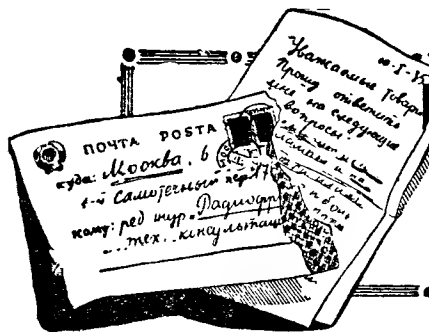 ПОЧТА POSTA
куда: Москва, 6
1-й Самотечный пер 17
кому: ред жур. Радиофр
тех. консультаци
Уважаемые Товари
Прошу ответить
мне на следующие
вопросы: